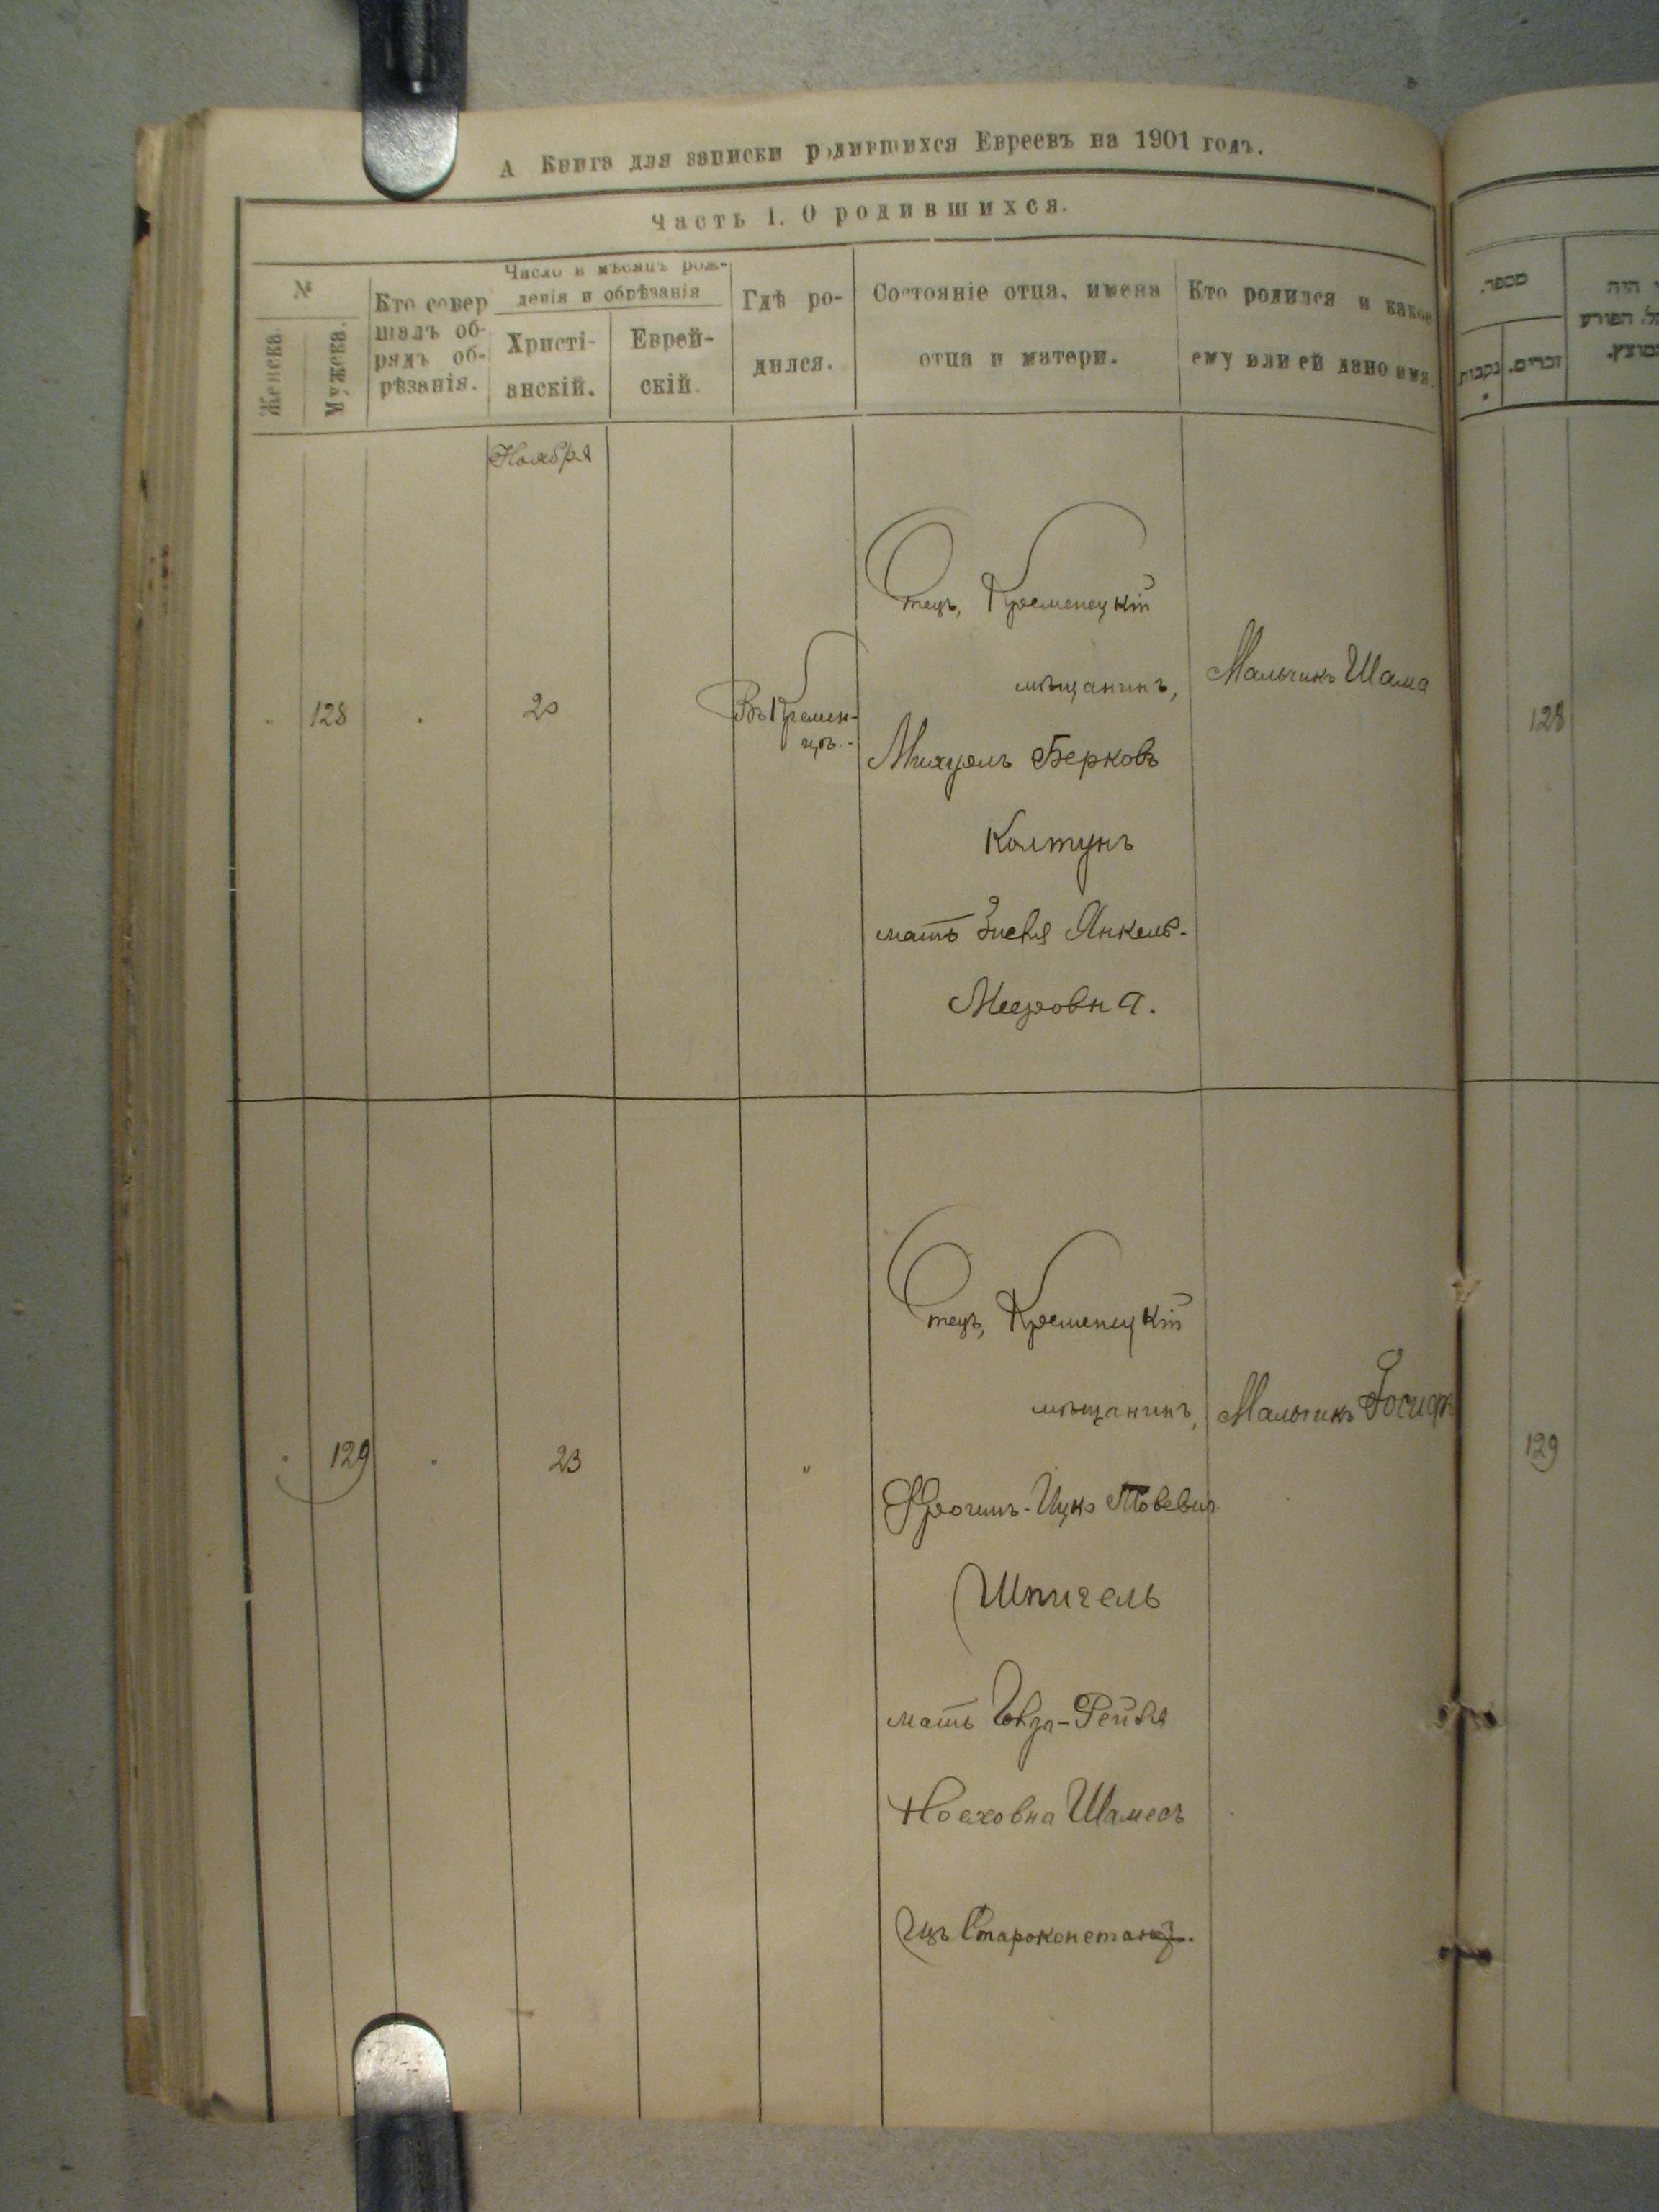 А Книга для записки родившихся Евреевъ на 1901 годъ.
Часть I. О родившихся.
№
Женска
Мужска.
Кто совер
шалъ об-
рядъ об-
рѣзанія.
Число и мѣсяцъ рож-
денія и обрѣзанія
Христі-
анскій.
Еврей-
скій.
Гдѣ ро-
дился.
Состояніе отца, имена
отца и матери.
Кто родился и какое
ему или ей дано имя.
Ноября
128
20
Въ Кремен-
цѣ.-
Отецъ, Кременецкій
мѣщанинъ,
Берковъ
Колтунъ
мать Янкель-
Мееровна.
Мальчикъ Шама
129
23
"
Отецъ, Кременецкій
мѣщанинъ,
Ицко Товевич
Шпигель
мать -Рейвя
Шамесъ
Староконстан
Мальчикъ Іосифъ
מספר.
נקבות
זכרים.
128
129